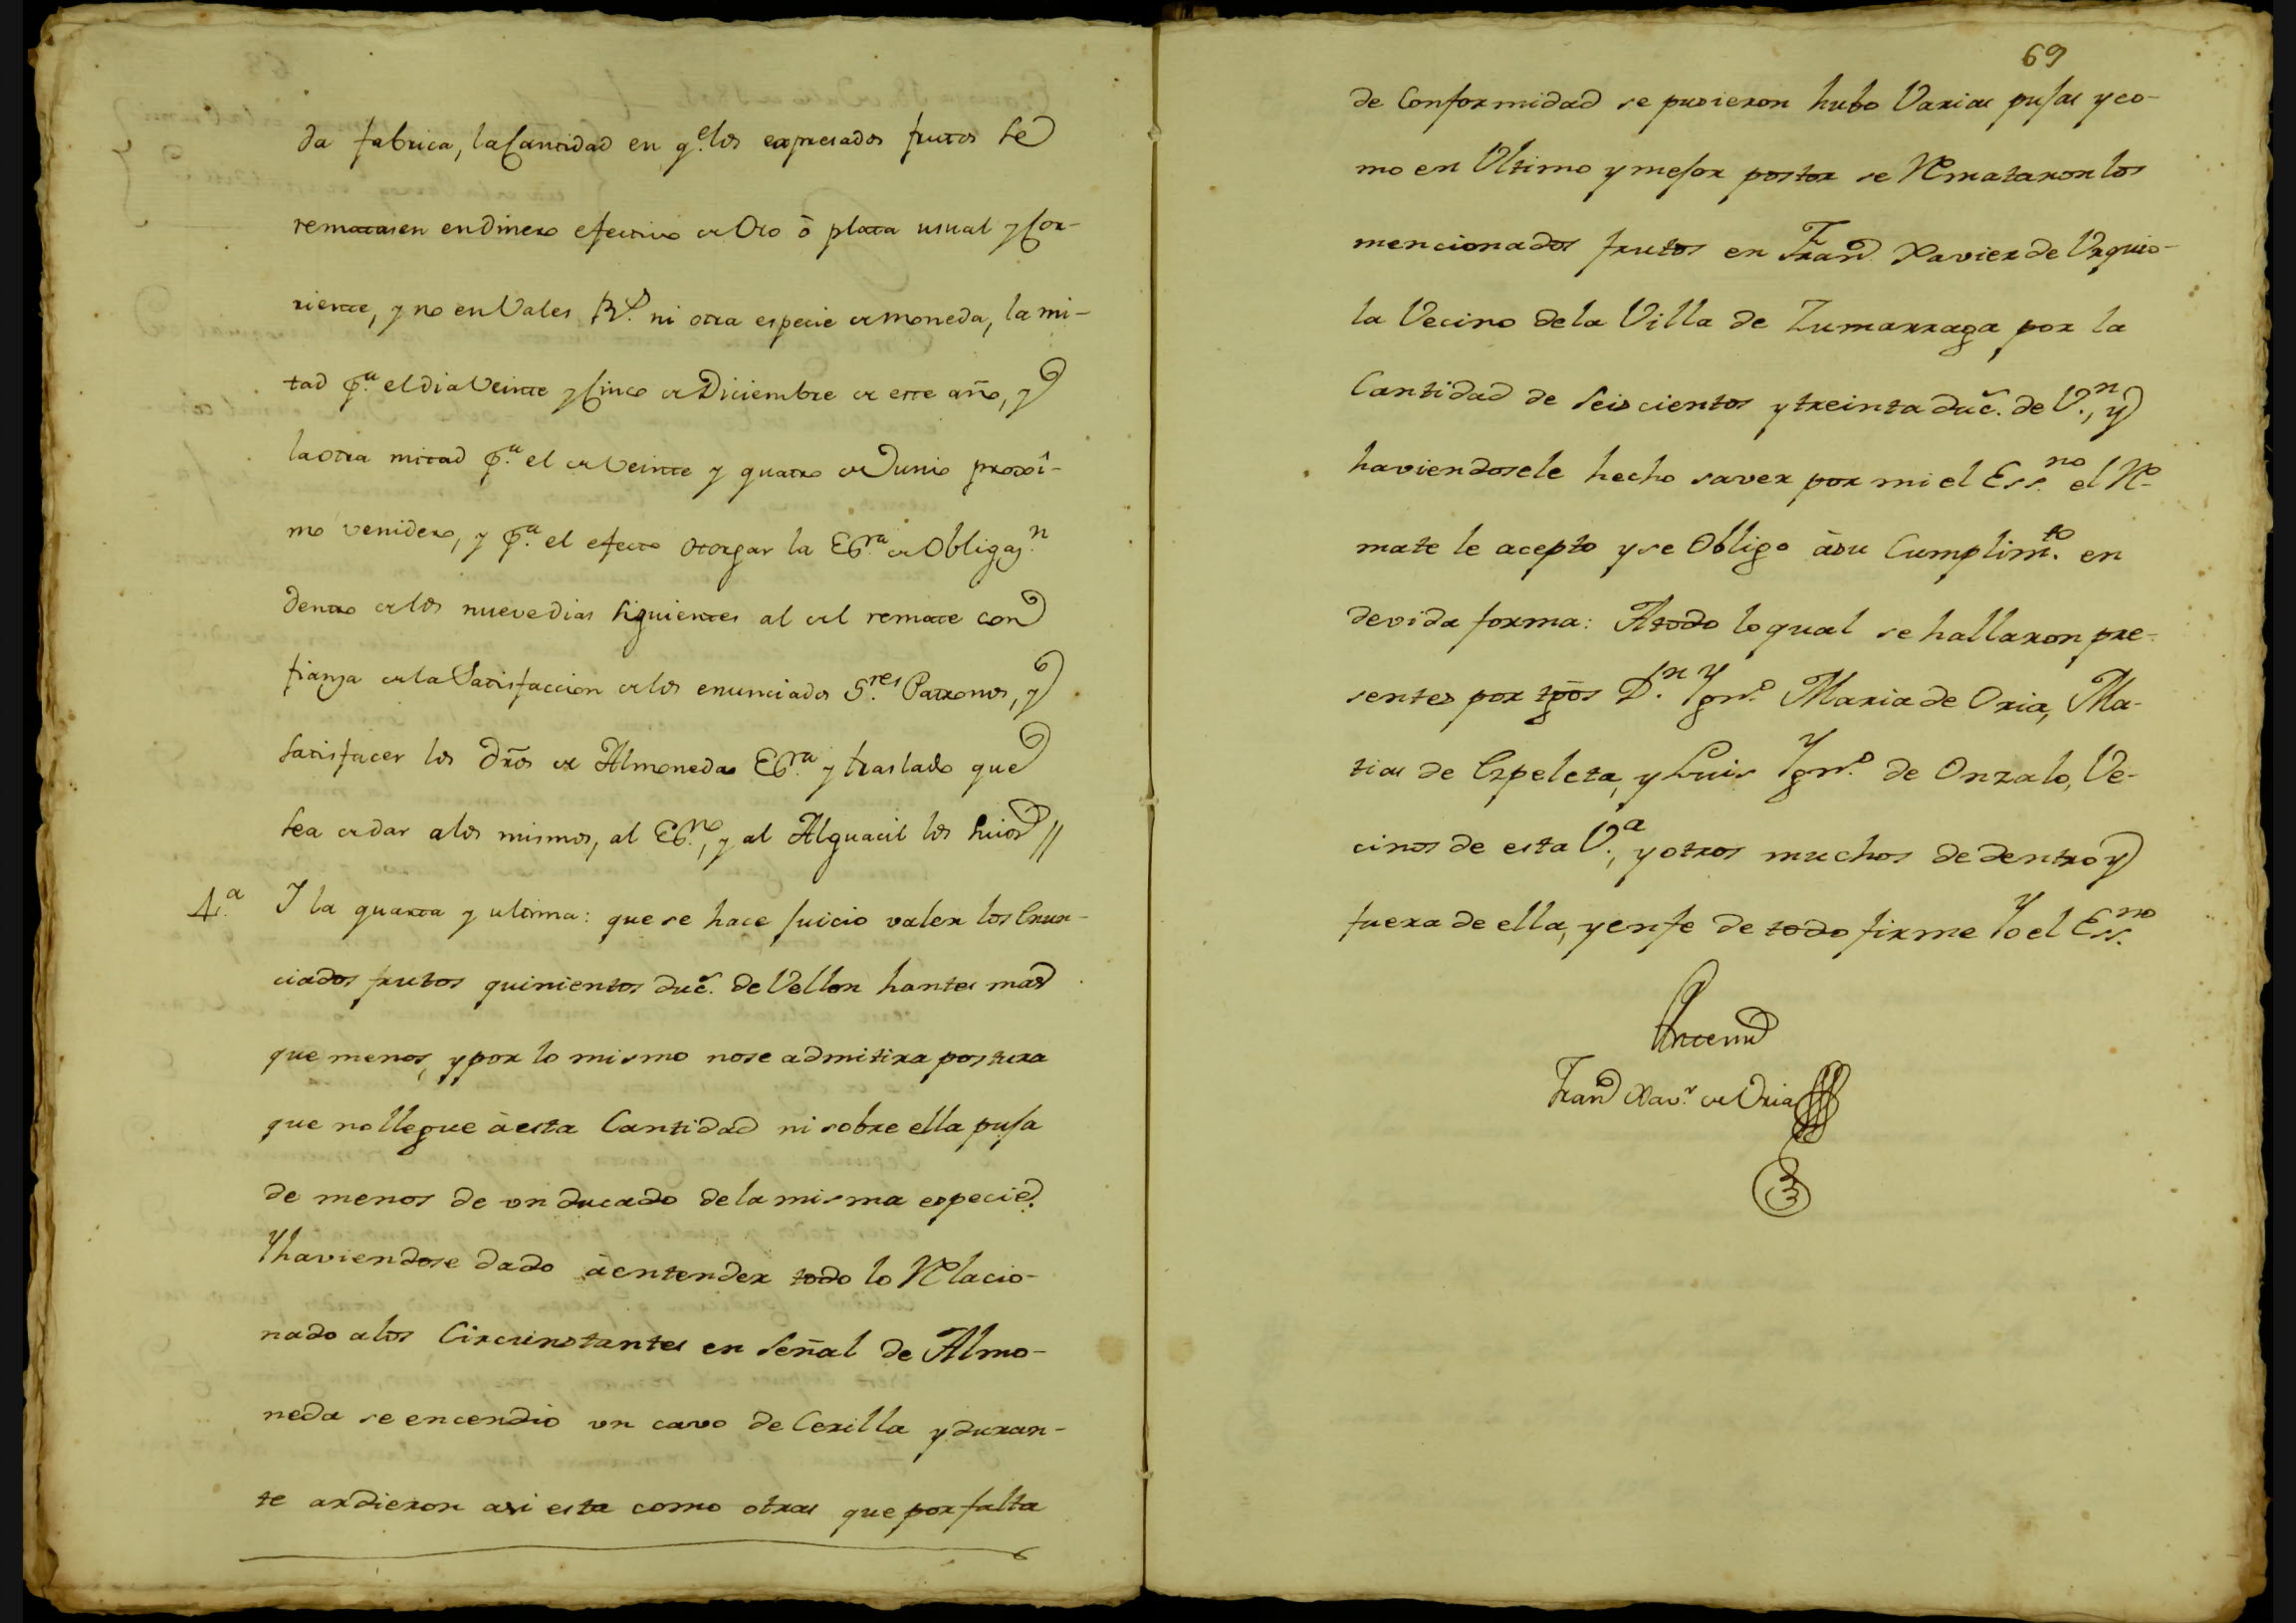 da fabrica, la Cantidad en q.e los expresados frutos se
rematasen en dinero efectivo de Oro ò plata usual y Cor-
riente, y no en Vales R.s ni otra especie de moneda, la mi-
tad p.a el dia Veinte y Cinco de Diciembre de este año, y
la otra mitad p.a el de Veinte y quatro de Junio proxî-
mo venidero, y p.a el efecto otorgar la Es.ra de Obligaz.n
dentro de los nueve dias siguientes al del remate con
fianza de la Satisfaccion de los enunciados S.res Patronos, y
satisfacer los dr̃os de Almoneda Es.ra y traslado que
sea de dar a los mismos, al Es.no, y al Alguacil los suios //
4.a Y la quarta y ultima: que se hace juicio valer los Enun-
ciados frutos quinientos duc̃. de Vellon hantes mas
que menos, y por lo mismo no se admitira postura
que no llegue à esta Cantidad ni sobre ella puja
de menos de un ducado de la misma especie.
Y haviendose dado à entender todo lo Relacio-
nado a los Circunstantes en señal de Almo-
neda se encendio un cavo de Cerilla y duran-
te ardieron asi esta como otras que por falta
69
de Conformidad se pusieron hubo Varias pujas y co-
mo en Ultimo y mejor postor se Remataron los
mencionados frutos en Fran.co Xavier de Urquio-
la Vecino de la Villa de Zumarraga por la
Cantidad de Seiscientos y treinta duc̃. de V.n, y
haviendosele hecho saver por mi el Ess.no el Re-
mate le acepto y se Obligo à su Cumplim.to en
devida forma: A todo lo qual se hallaron pre-
sentes por tg̃os D.n Ygn.o Maria de Oria, Ma-
tias de Ezpeleta, y Luis Ygn.o de Onzalo, Ve-
cinos de esta V.a, y otros muchos de dentro y
fuera de ella, y en fe de todo firme Yo el Ess.no
Antemi
Fran.co Xav.r de Oria